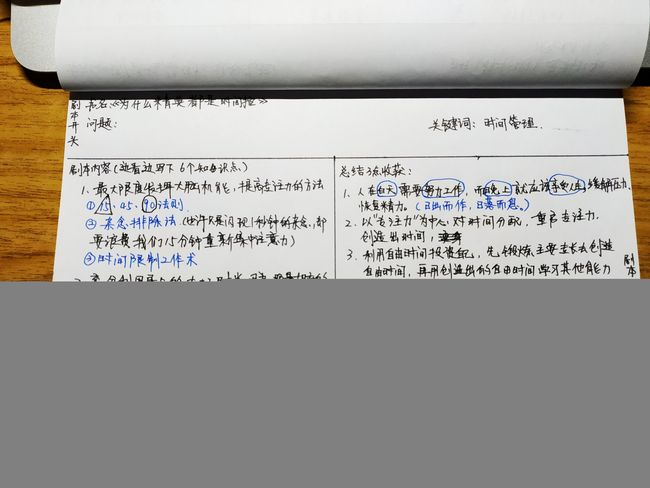 剧本开头
书名:《为什么精英都是时间控》
问题:
关键词: 时间管理.
剧本内容(边看边写下6个知识点)
1、最大限度发挥大脑机能, 提高专注力的方法
① 15、45、90法则
② 杂念排除法(也许只是闪现1秒钟的杂念, 都
要浪费我们15分钟重新集中注意力)
③ 时间限制工作术
总结3点收获:
1. 人在白天需要努力工作, 而晚上就应该缓解压力,
恢复精力。(日出而作, 日落而息。)
2. 以"专注力"为中心对时间分配, 重启专注力.
创造出时间,
3. 利用自由时间投资自己, 先锻炼主要专长去创造
自由时间, 再用创造出的自由时间学习其他能力
剧本